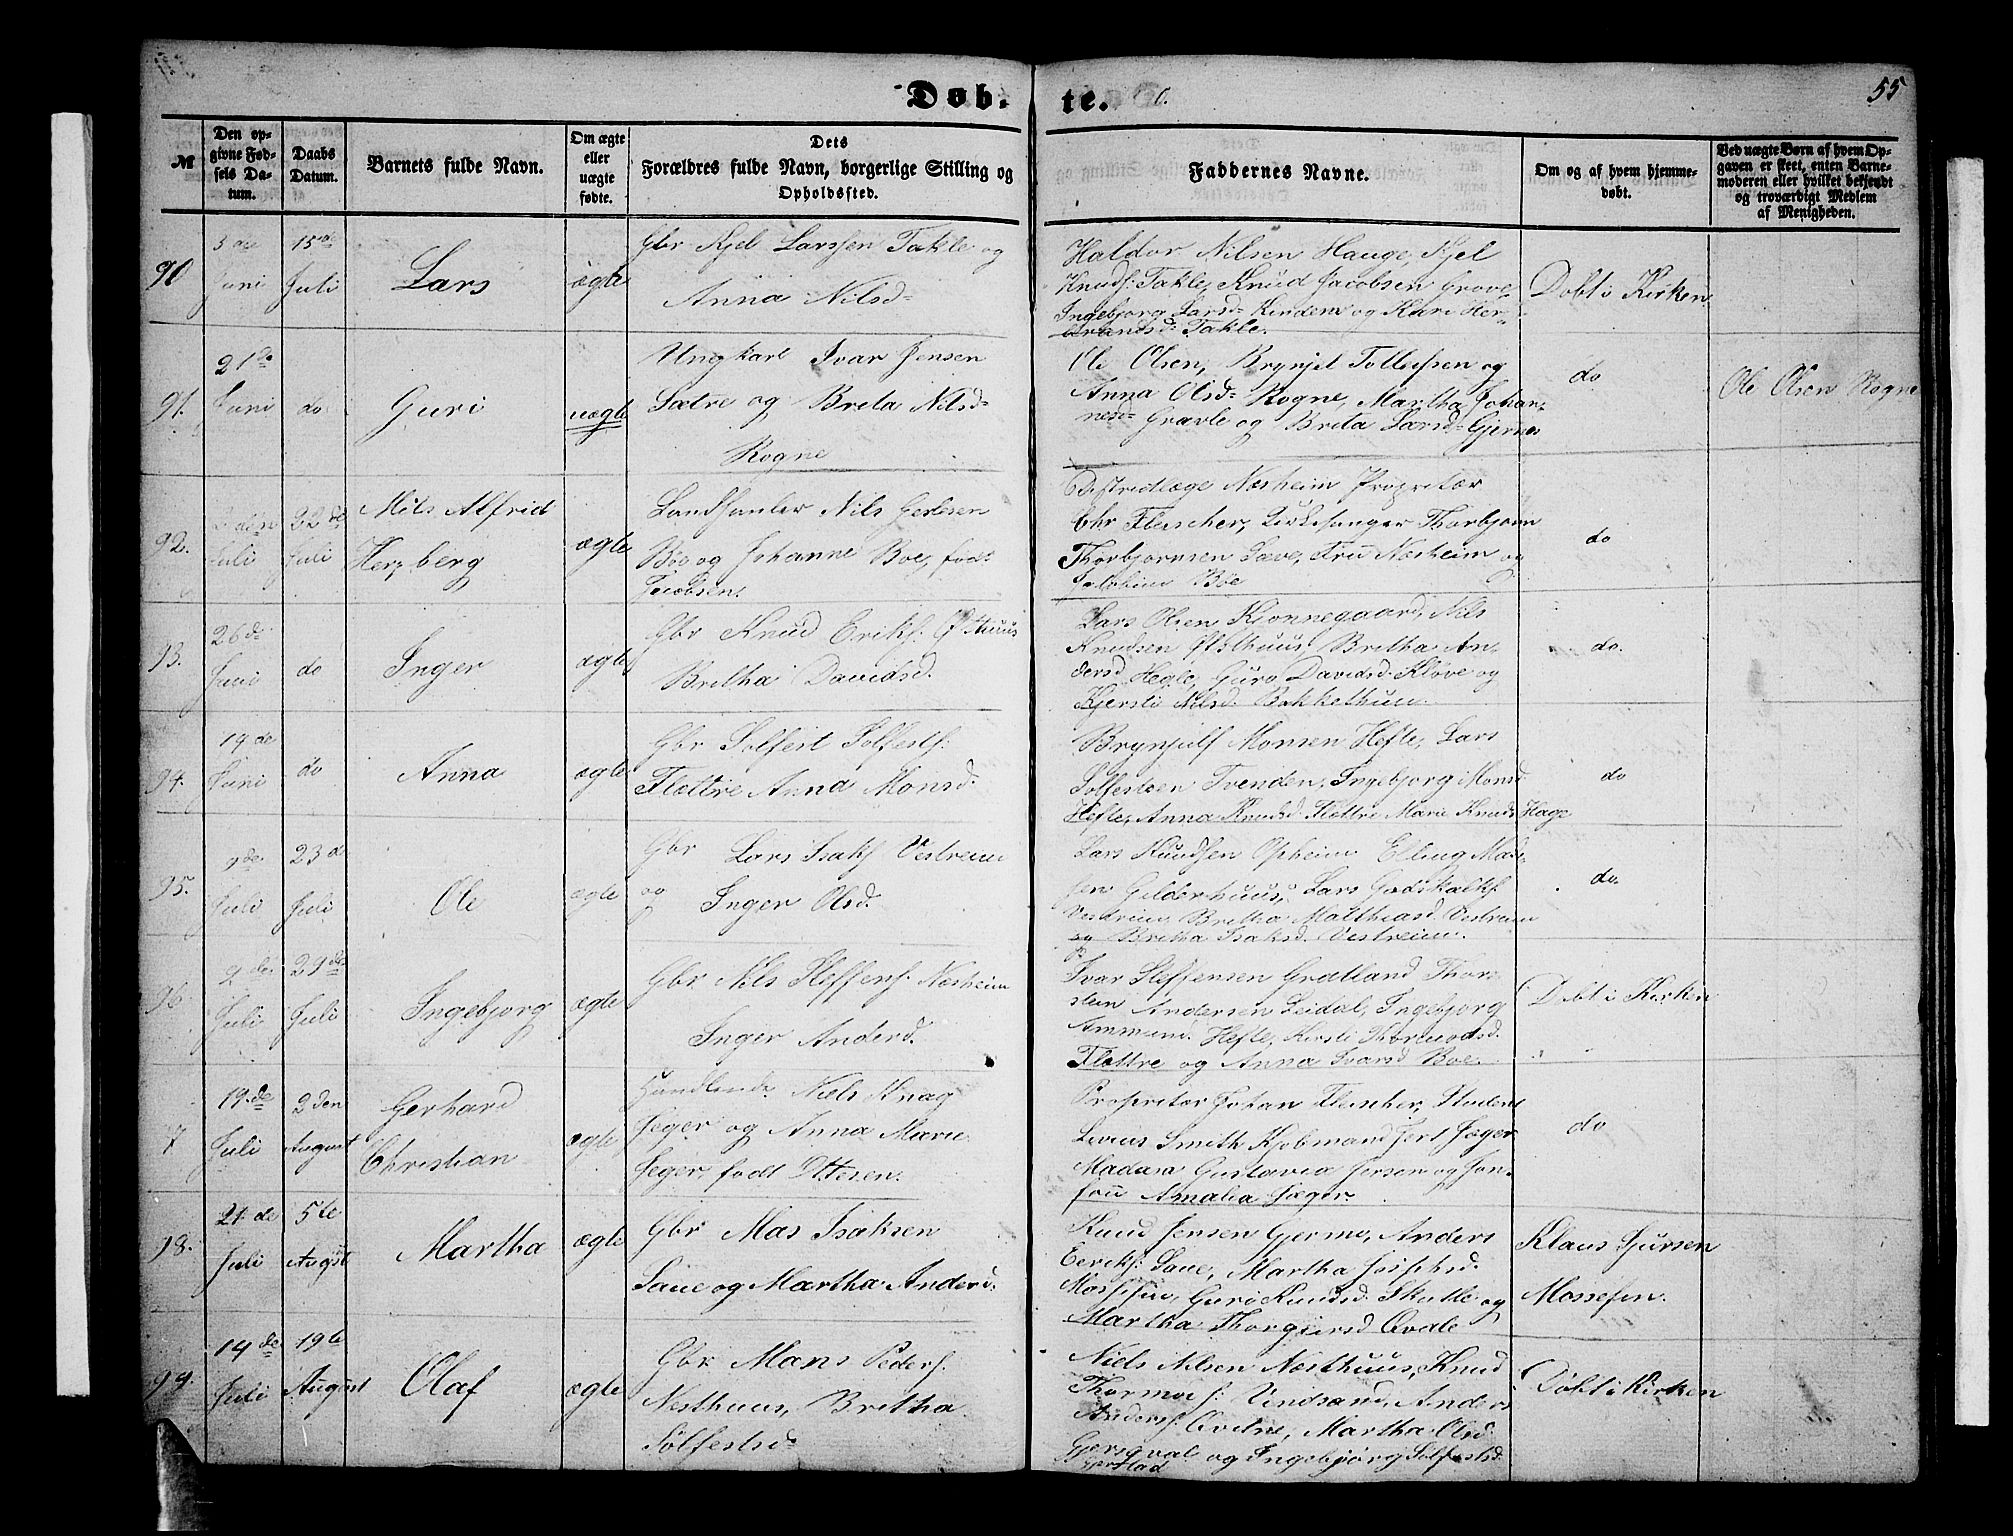 Døb.
te.
55
№
Den op-
givne Fød-
sels Da-
tum.
Daabs
Datum.
Barnets fulde Navn.
Om ægte
eller
uægte
fødte.
Dets
Forældres fulde Navn, borgerlige Stilling og
Opholdssted.
Faddernes Navne.
Om og af hvem hjemme-
døbt.
Ved uægte Børn af hvem Op-
gaven er skeet, enten Barne-
moderen eller hvilket bekjendt
og troværdigt Medlem
af Menigheden.
90
5 de
Juni
15de
Juli
Lars
ægte
Gbr Kjel Larssen Takle og
Anna Nilsd=
Haldor Nilsen Hauge, Kjel
Knuds: Takle, Knud Jacobsen Grove
Ingebjorg Larsd= Kindem og Kari Her-
brandsd: Takle.
Døbt i Kirken
91.
21de
Juni
do
Guri
uægte
Ungkarl Ivar Jensen
Sætre og Brita Nilsd=
Rogne
Ole Olsen, Brynjel Tollefsen og
Anna Olsd= Rogne, Martha Johan-
nesd= Gravle og Brita Larsd= Gjernes
do
Ole Olsen Rogne
92.
2den
Juli
22de
Juli
Nils Alfrid
Herzberg
ægte
Landhanler Nils Gerlesen
Böe og Johanne Boe, født
Jacobsen.
Distridlæge Næsheim Propretær
Chr Fleischer, Kirkesanger Thorbjorn
Thorbjornsen Sæve, Fru Næsheim og
Böe
do
93.
26de
Juni
do
Inger
ægte
Gbr Knud Eriks: Østhuus
Britha Davidsd.
Lars Olsen Kionnegaard, Nils
Knudsen Østhuus, Britha An-
dersd Hegle, Guro Davidsd. Kløve og
Kjersti Nilsd. Bakkethun.
do.
94.
19de
Juni
do
Anna
ægte
Gbr Solfest Solfests:
Flættre Anna Monsd.
Brynjulf Monsen Hefte, Lars
Solfestsen Tvenden, Ingebjorg Monsd
Hefte, Anna Knudsd Flættre Marie Knudsd Hage
do
95.
9de
Juli
23d
Juli
Ole
ægte
Gbr Lars Isaks Vestreim
og Inger Olsd.
Lars Knudsen Opheim Elling Mad-
sen Gilderhuus, Lars Godskalks
Vestreim, Britha Matthiasd Vestreim
og Britha Isaksd. Vestreim.
do.
96.
9de
Juli
29de
Juli
Ingebjorg
ægte
Gbr Nils Steffens: Næsheim
Inger Anderd.
Ivar Steffensen Grotland Thor-
stein Andersen Leidal, Ingebjorg
Ammund. Hefte, Kirsti Thormodsd.
Flættre og Anna Ivarsd Boe.
Døbt i Kirken
7
19de
Juli
2den
August
Gerhard
Christian
ægte
Handlende Niels Knag
Jeger og Anna Marie
Jeger, født Ottesen.
Propretær Johan Fleischer, Student
Smith Kjobmand Jert Jæger
Madam Gustavia Jersen og Jom-
fru Amalia Jæger.
do
98.
21de
Juli
5te
August
Martha
ægte
Gbr Mas Isaksen
Saue og Martha Anderd.
Knud Jensen Gjerme, Anders
Eeriks: Saue, Martha Josephsd.
Mossefin, Guri Knudsd. Skutle og
Martha Thorgiersd Qvale
Klaus Sjursen
Mossefin.
99.
14de
Juli
19te
August
Olaf
ægte
Gbr Mons Peders:
Nesthuus, Britha
Solfestsd=
Niels Nilsen Næsthuus, Knud
Thormod s: Vindsand, Anders
Anders: Qvitne, Martha Olsd
Gjersqval og Ingebjørg Solfestsd.
Gjerstad
Døbt i Kirken